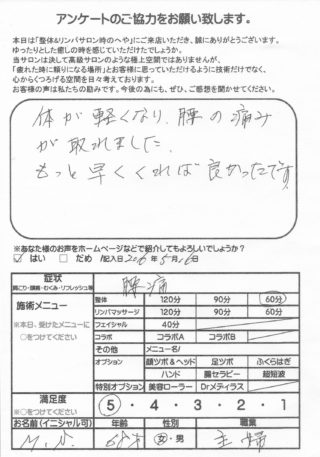 アンケートのご協力をお願い致します。
本日は「整体&リンパサロン時のへや」にご来店いただき、誠にありがとうございます。
ゆったりとした癒しの時を感じていただけたでしょうか。
当サロンは決して高級サロンのような極上空間ではありませんが、
「疲れた時に頼りになる場所」とお客様に思っていただけるように技術だけでなく、
心からくつろげる空間を日々考えております。
お客様の声は私たちの励みです。今後の為にも、ぜひ、ご感想をお聞かせください。
体が軽くなり、腰の痛み
が取れました。
もっと早くくれば良かったです
※あなた様のお声をホームページなどで紹介してもよろしいでしょうか?
はい □ だめ /記入日 2016年5月16日
症状
肩こり・頭痛・むくみ・リフレッシュ等
腰痛
施術メニュー
※本日、受けたメニューに
○をつけてください
整体 120分 90分 60分
リンパマッサージ 120分 90分 60分
フェイシャル 40分
コラボ コラボA コラボB
その他 メニュー名/
オプション 頭ツボ&ヘッド 足ツボ ふくらはぎ
ハンド 腸セラピー 超短波
特別オプション 美容ローラー Drメディラス
満足度
※○をつけてください
5・4・3・2・1
お名前(イニシャル可) 年齢 性別 職業
女・男 主婦